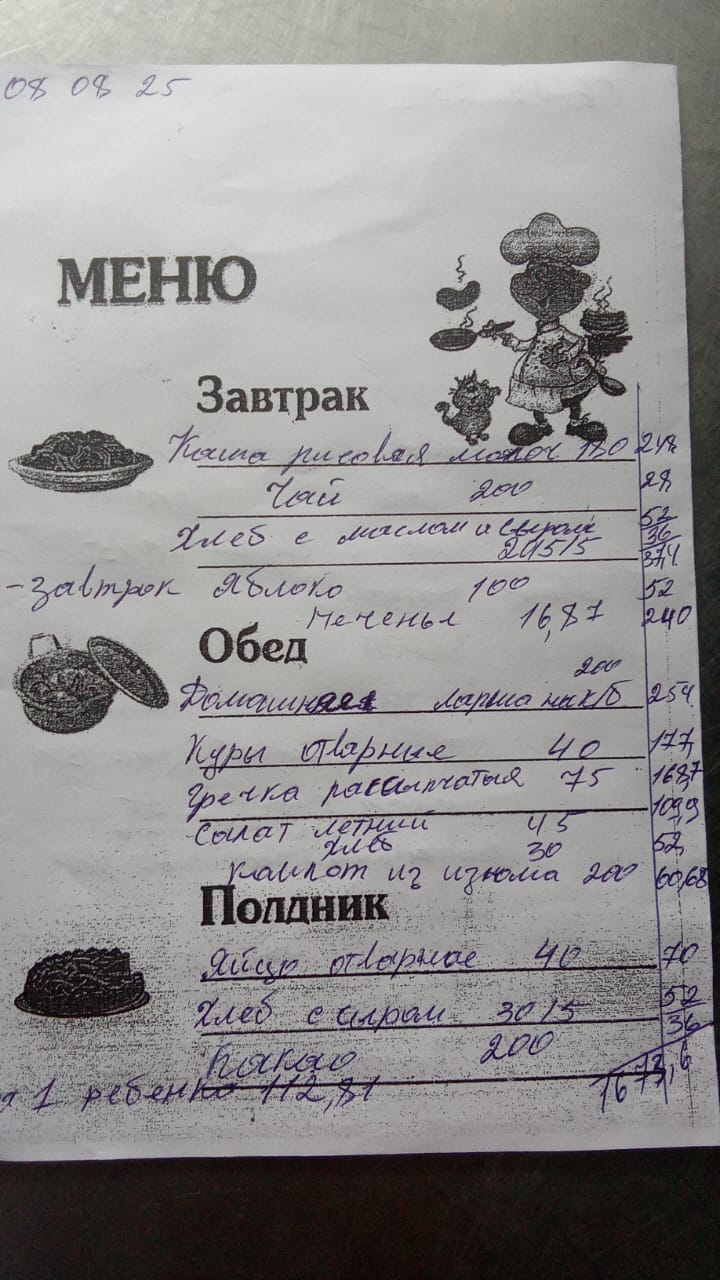 08 08 25
МЕНЮ
Завтрак
Каша рисовая молоч 180 248
Чай 200 28
Хлеб с маслом и сыром 52
20/5/5 36
37,4
-завтрак Яблоко 100 52
Печенья 16,87 240
Обед
200
Домашняя лапша на к/б 254
Куры отварные 40 177
Гречка рассыпчатая 75 168,7
Салат летний 45 109,9
хлеб 30 52
Компот из изюма 200 60,68
Полдник
Яйцо отварное 40 70
Хлеб с сыром 30/5 52
36
Какао 200
1 ребенка 112,81